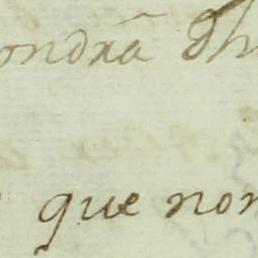 ondrã dh
que non